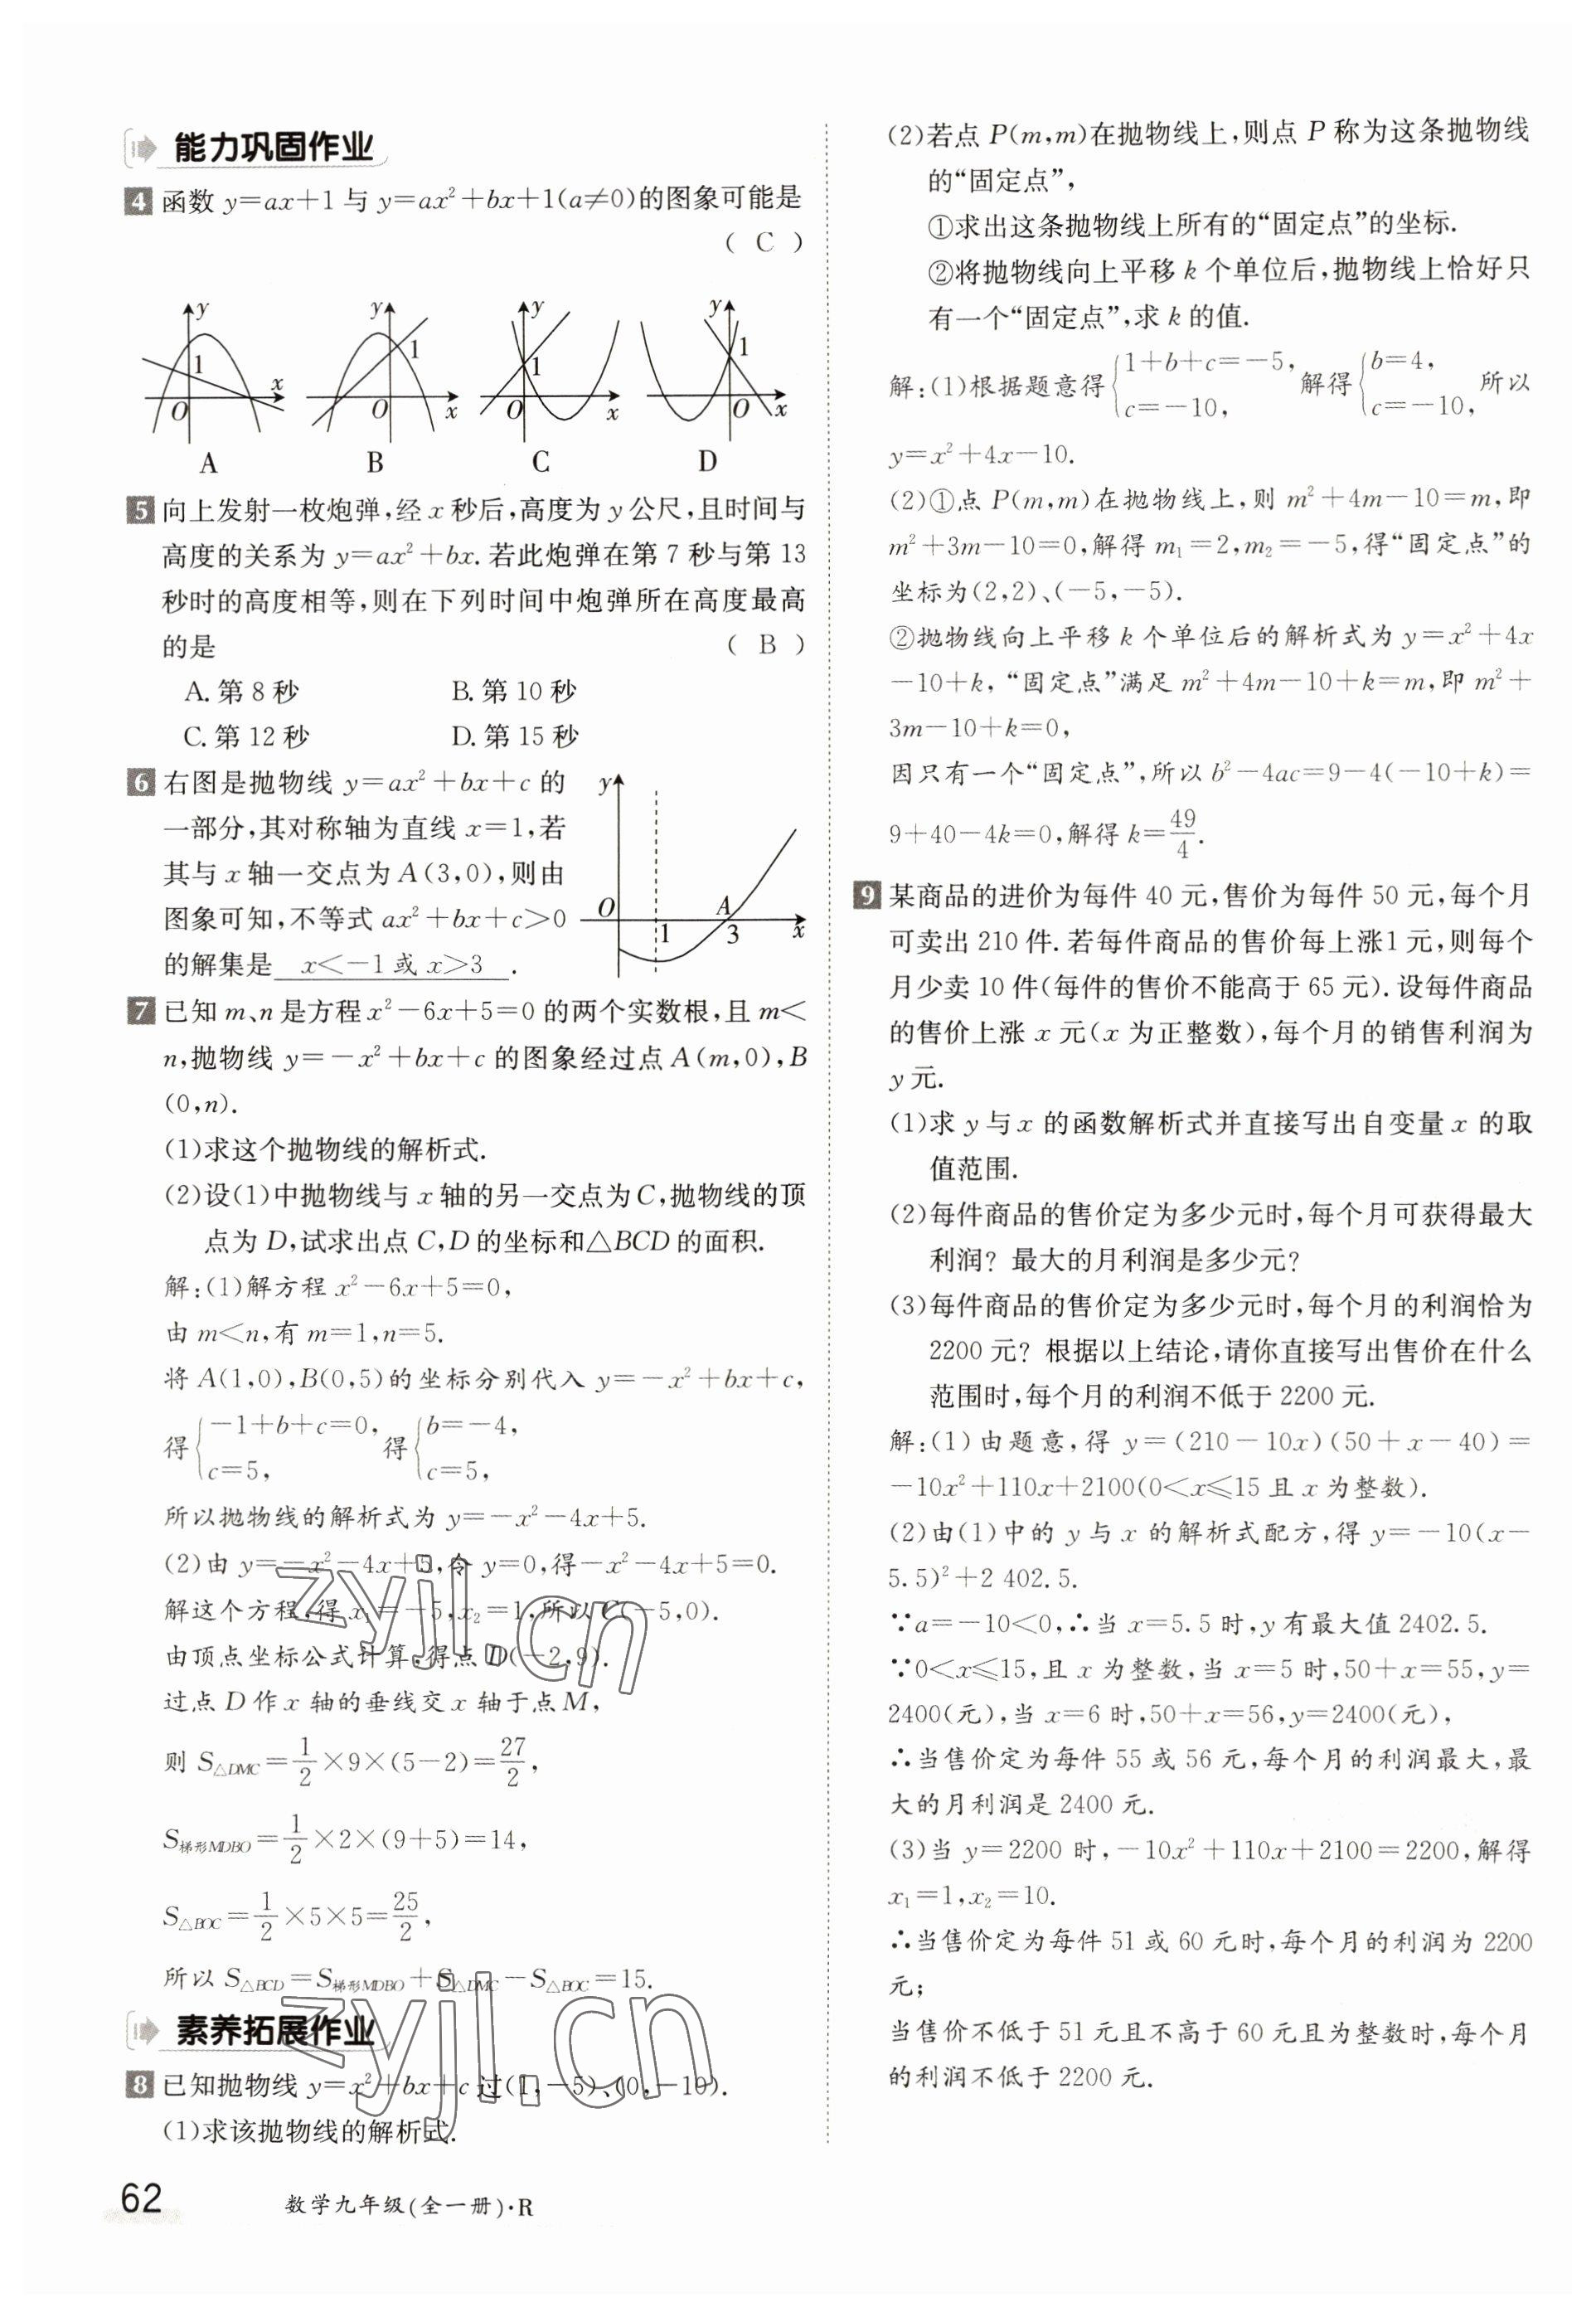 能力巩固作业
4 函数 y=ax+1 与 y=ax²+bx+1(a≠0)的图象可能是
( C )
y 1 O x
y 1 O x
y 1 O x
y 1 O x
A B C D
5 向上发射一枚炮弹,经 x 秒后,高度为 y 公尺,且时间与
高度的关系为 y=ax²+bx. 若此炮弹在第 7 秒与第 13
秒时的高度相等,则在下列时间中炮弹所在高度最高
的是 ( B )
A. 第 8 秒 B. 第 10 秒
C. 第 12 秒 D. 第 15 秒
6 右图是抛物线 y=ax²+bx+c 的
一部分,其对称轴为直线 x=1,若
其与 x 轴一交点为 A(3,0),则由
图象可知,不等式 ax²+bx+c>0
的解集是 x<-1 或 x>3 .
y O 1 A 3 x
7 已知 m、n 是方程 x²-6x+5=0 的两个实数根,且 m<
n,抛物线 y=-x²+bx+c 的图象经过点 A(m,0),B
(0,n).
(1)求这个抛物线的解析式.
(2)设(1)中抛物线与 x 轴的另一交点为C,抛物线的顶
点为 D,试求出点 C,D 的坐标和△BCD 的面积.
解:(1)解方程 x²-6x+5=0,
由 m<n,有 m=1,n=5.
将 A(1,0),B(0,5)的坐标分别代入 y=-x²+bx+c,
得{-1+b+c=0, c=5, 得{b=-4, c=5,
所以抛物线的解析式为 y=-x²-4x+5.
(2)由 y=-x²-4x+5,令 y=0,得-x²-4x+5=0.
解这个方程,得 x₁=-5,x₂=1,所以 C(-5,0).
由顶点坐标公式计算,得点 D(-2,9).
过点 D 作 x 轴的垂线交 x 轴于点M,
则 S△DMC=1/2×9×(5-2)=27/2,
S梯形MDBO=1/2×2×(9+5)=14,
S△BOC=1/2×5×5=25/2,
所以 S△BCD=S梯形MDBO+S△DMC-S△BOC=15.
素养拓展作业
8 已知抛物线 y=x²+bx+c 过(1,-5)、(0,-10).
(1)求该抛物线的解析式.
62 数学九年级(全一册)·R
(2)若点 P(m,m)在抛物线上,则点 P 称为这条抛物线
的“固定点”,
①求出这条抛物线上所有的“固定点”的坐标.
②将抛物线向上平移 k 个单位后,抛物线上恰好只
有一个“固定点”,求 k 的值.
解:(1)根据题意得{1+b+c=-5, c=-10, 解得{b=4, c=-10, 所以
y=x²+4x-10.
(2)①点 P(m,m)在抛物线上,则 m²+4m-10=m,即
m²+3m-10=0,解得 m₁=2,m₂=-5,得“固定点”的
坐标为(2,2)、(-5,-5).
②抛物线向上平移 k 个单位后的解析式为 y=x²+4x
-10+k,“固定点”满足 m²+4m-10+k=m,即 m²+
3m-10+k=0,
因只有一个“固定点”,所以 b²-4ac=9-4(-10+k)=
9+40-4k=0,解得 k=49/4.
9 某商品的进价为每件 40 元,售价为每件 50 元,每个月
可卖出 210 件. 若每件商品的售价每上涨1 元,则每个
月少卖 10 件(每件的售价不能高于 65 元). 设每件商品
的售价上涨 x 元(x 为正整数),每个月的销售利润为
y 元.
(1)求 y 与 x 的函数解析式并直接写出自变量 x 的取
值范围.
(2)每件商品的售价定为多少元时,每个月可获得最大
利润? 最大的月利润是多少元?
(3)每件商品的售价定为多少元时,每个月的利润恰为
2200 元? 根据以上结论,请你直接写出售价在什么
范围时,每个月的利润不低于 2200 元.
解:(1)由题意,得 y=(210-10x)(50+x-40)=
-10x²+110x+2100(0<x≤15 且 x 为整数).
(2)由(1)中的 y 与 x 的解析式配方,得 y=-10(x-
5.5)²+2 402.5.
∵a=-10<0,∴当 x=5.5 时,y 有最大值 2402.5.
∵0<x≤15,且 x 为整数,当 x=5 时,50+x=55,y=
2400(元),当 x=6 时,50+x=56,y=2400(元),
∴当售价定为每件 55 或 56 元,每个月的利润最大,最
大的月利润是 2400 元.
(3)当 y=2200 时,-10x²+110x+2100=2200,解得
x₁=1,x₂=10.
∴当售价定为每件 51 或 60 元时,每个月的利润为 2200
元;
当售价不低于 51 元且不高于 60 元且为整数时,每个月
的利润不低于 2200 元.
zyjl.cn
zyjl.cn